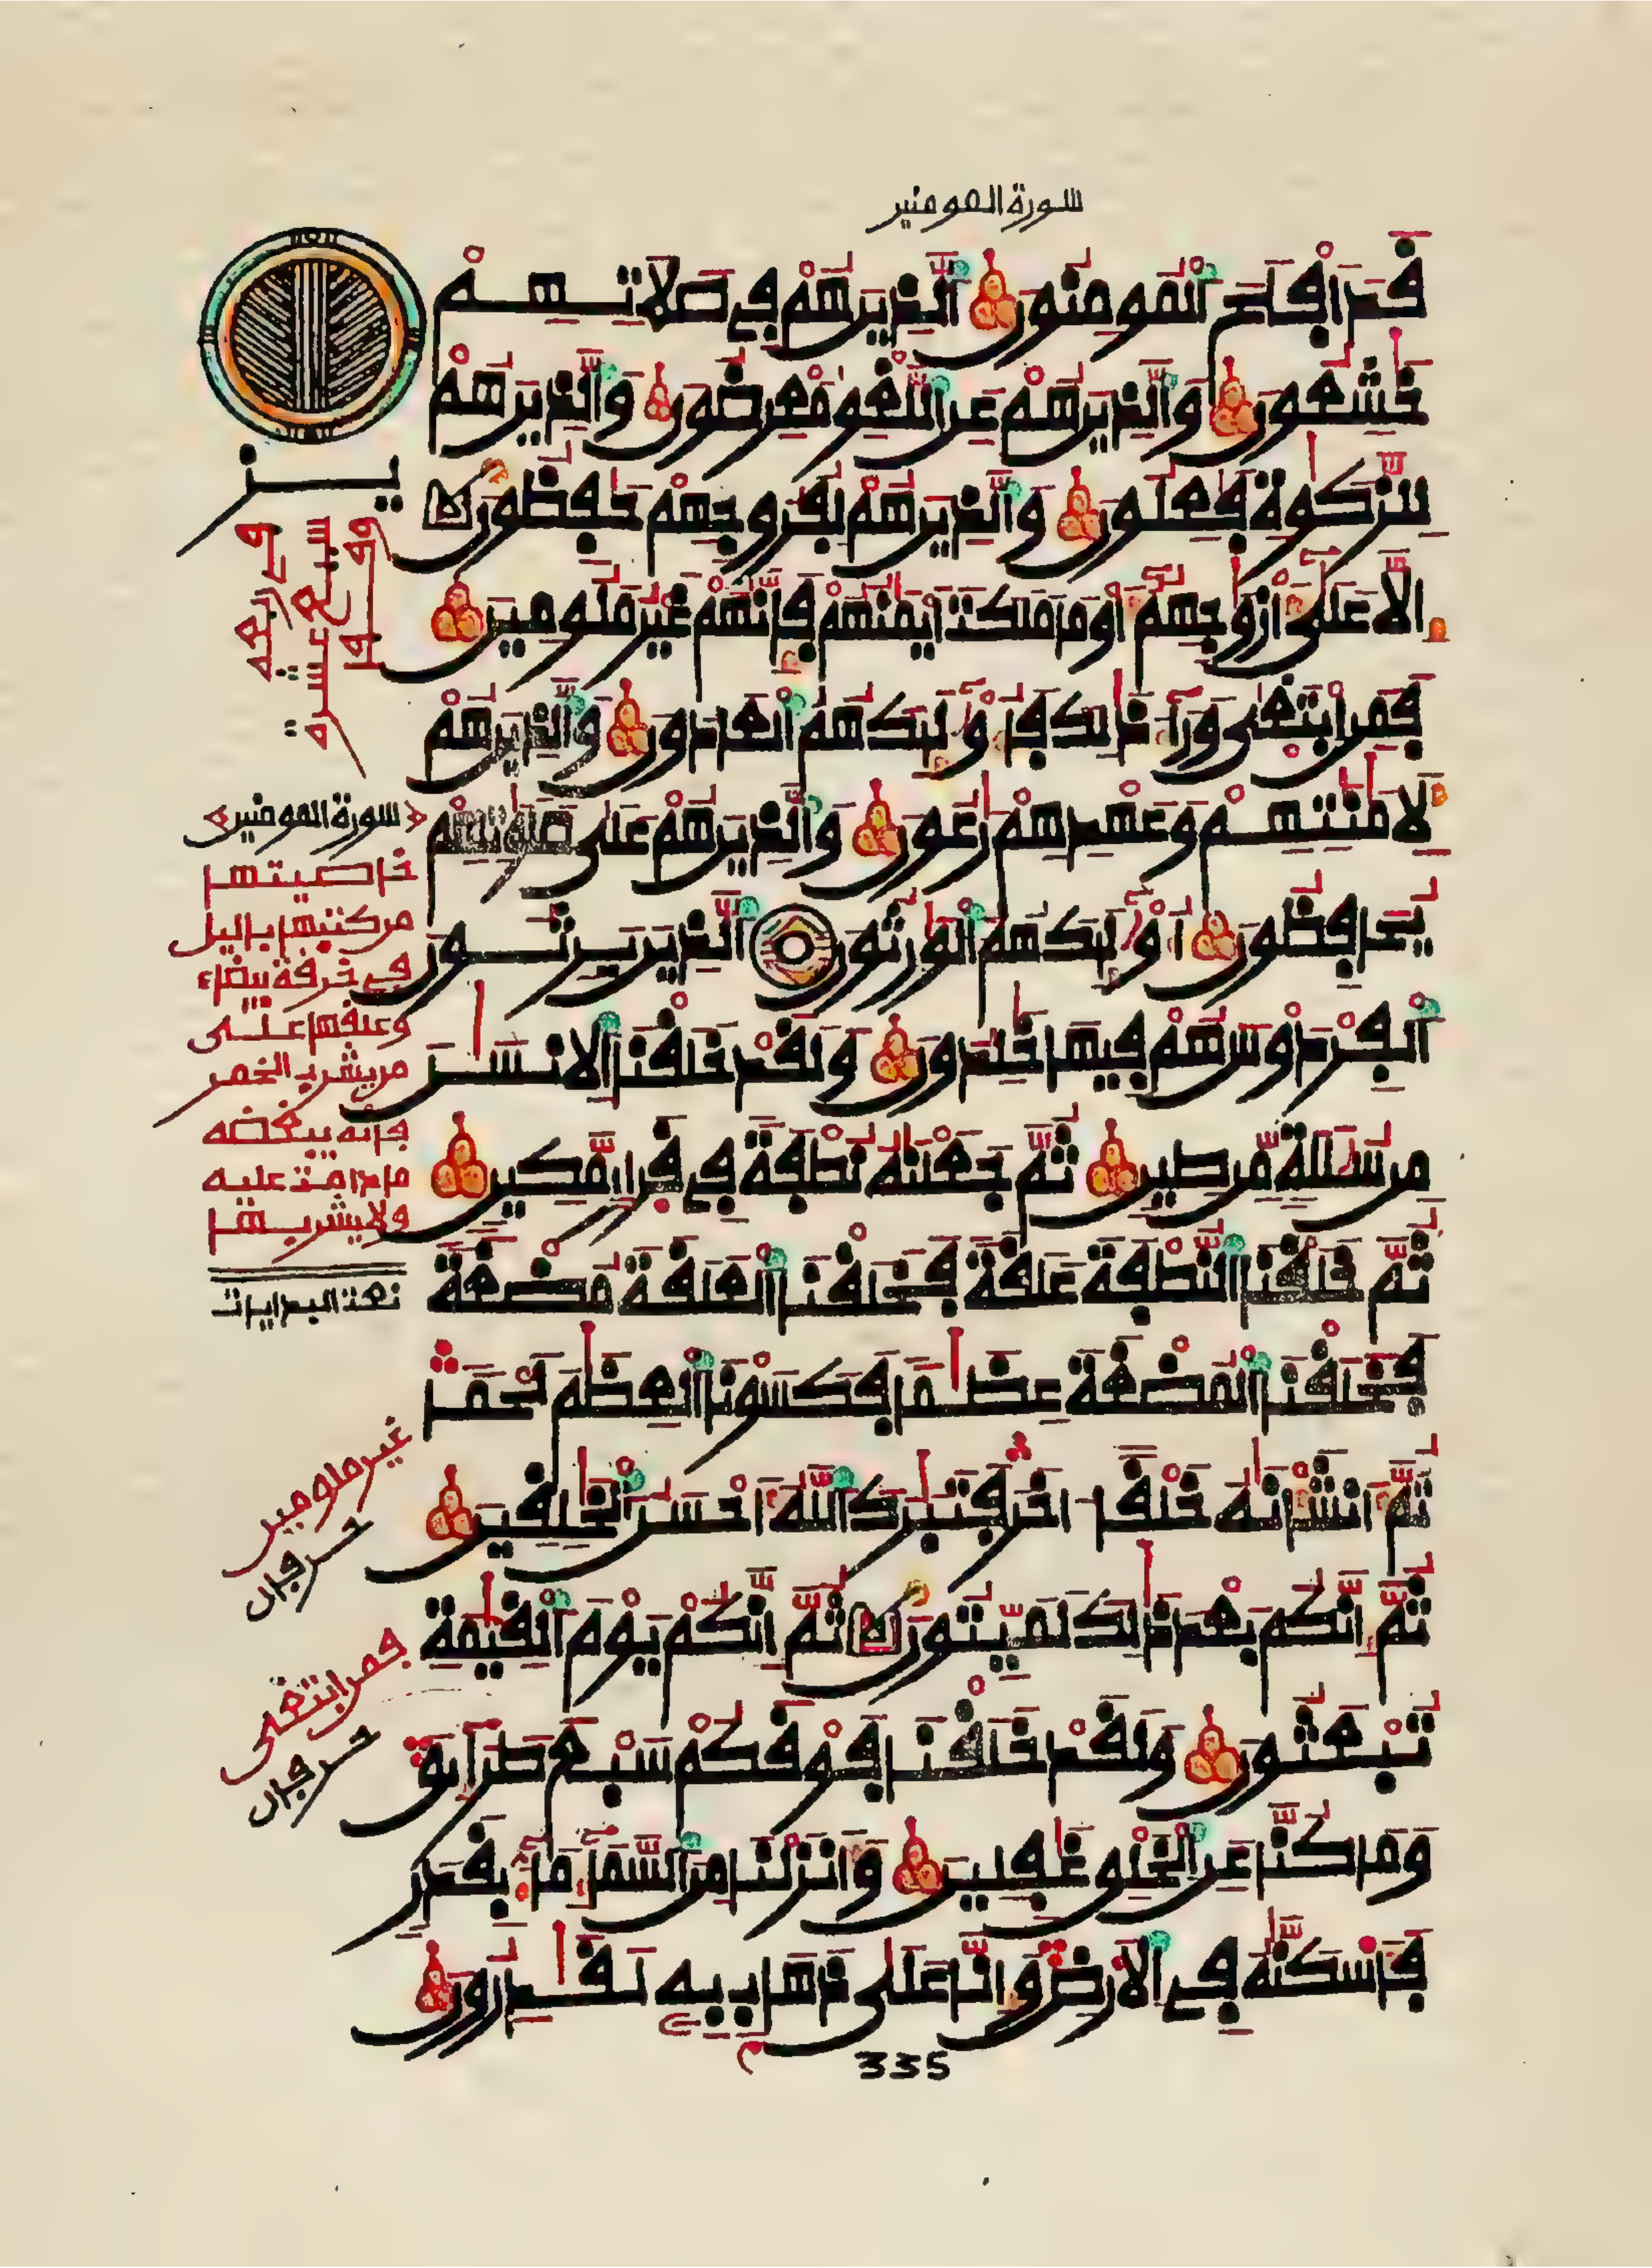 سورة المومنين
قَدَ اَفْلَحَ اَلْمُومِنُونَ اَلذِينَ هُمْ فِي صَلَاتِهِمْ
خَٰشِعُونَ وَالذِينَ هُمْ عَنِ اِللَّغْوِ مُعْرِضُونَ وَالذِينَ هُمْ
لِلزَّكَوٰةِ فَٰعِلُونَ وَالذِينَ هُمْ لِفُرُوجِهِمْ حَٰفِظُونَ
إِلَّا عَلَىٰ أَزْوَٰجِهِمُۥ أَوْ مَا مَلَكَتَ اَيْمَٰنُهُمْ فَإِنَّهُمْ غَيْرُ مَلُومِينَ
فَمَنِ اِبْتَغَىٰ وَرَآءَ ذَٰلِكَ فَأُوْلَٰٓئِكَ هُمُ اُلْعَادُونَ وَالذِينَ هُمْ
لِأَمَٰنَٰتِهِمْ وَعَهْدِهِمْ رَٰعُونَ وَالذِينَ هُمْ عَلَىٰ صَلَوَٰتِهِمْ
يُحَافِظُونَ أُوْلَٰٓئِكَ هُمُ اُلْوَٰرِثُونَ اَلذِينَ يَرِثُونَ
اَلْفِرْدَوْسَ هُمْ فِيهَا خَٰلِدُونَ وَلَقَدْ خَلَقْنَا اَلِانسَٰنَ
مِن سُلَٰلَةٖ مِّن طِينٖ ثُمَّ جَعَلْنَٰهُ نُطْفَةٗ فِي قَرَارٖ مَّكِينٖ
ثُمَّ خَلَقْنَا اَلنُّطْفَةَ عَلَقَةٗ فَخَلَقْنَا اَلْعَلَقَةَ مُضْغَةٗ
فَخَلَقْنَا اَلْمُضْغَةَ عِظَٰماٗ فَكَسَوْنَا اَلْعِظَٰمَ لَحْماٗ
ثُمَّ أَنشَأْنَٰهُ خَلْقاً اٰخَرَ فَتَبَٰرَكَ اَللَّهُ أَحْسَنُ اُلْخَٰلِقِينَ
ثُمَّ إِنَّكُم بَعْدَ ذَٰلِكَ لَمَيِّتُونَ ثُمَّ إِنَّكُمْ يَوْمَ اَلْقِيَٰمَةِ
تُبْعَثُونَ وَلَقَدْ خَلَقْنَا فَوْقَكُمْ سَبْعَ طَرَآئِقَ
وَمَا كُنَّا عَنِ اِلْخَلْقِ غَٰفِلِينَ وَأَنزَلْنَا مِنَ اَلسَّمَآءِ مَآءَۢ بِقَدَرٖ
فَأَسْكَنَّٰهُ فِي اِلَارْضِ وَإِنَّا عَلَىٰ ذَهَابِۢ بِهِۦ لَقَٰدِرُونَ
335
يز
سبع عشرة
سورة المومنين
خاصيتها
من كتبها باليل
في خرقة بيضاء
وعلقها على
من يشرب الخمر
فإنه يبغضه
ما دامت عليه
ولا يشربها
تمت البدايات
غير ملومين
حرفان
فمن ابتغى
حرفان